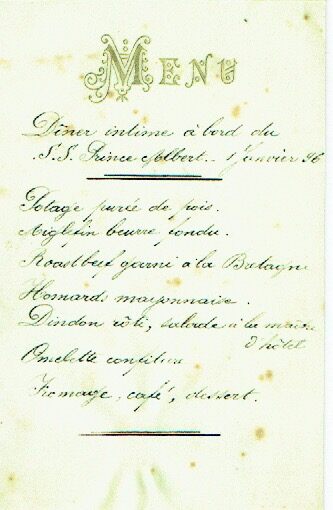 MENU
Dîner intime à bord du
S.S. Prince Albert - 1 Janvier 96
Potage purée de pois.
Aiglefin beurre fondu.
Roastbeef garni à la Bretagne
Homards mayonnaise.
Dindon rôti, salade à la maître
d'hôtel
Omelette confiture
Fromage, café, dessert.